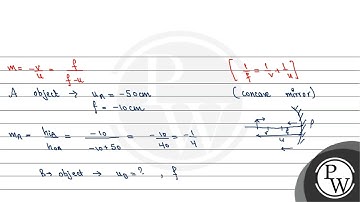 m = -v/u = f/f-u [1/f = 1/v + 1/u]
A object → u_A = -50cm (concave mirror)
f = -10cm
m_A = h_iA/h_oA = -10/-10+50 = -10/40 = -1/4
B → object → u_B = ? , f
PW